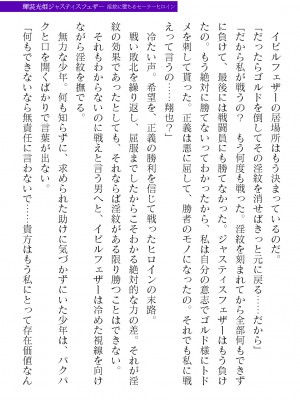 輝装光姫ジャスティスフェザー 淫紋に堕ちるセーラーヒロイン
イビルフェザーの居場所はもう決まっているのだ。
「だったらゴルドを倒してその淫紋を消せばきっと元に戻る……だから」
「だから私が戦うの？ もう何度も戦った。淫紋を刻まれてから全部何もできず
に負けて、最後には戦闘員にも勝てなかった。ジャスティスフェザーはもう負け
たの。もう絶対に勝てないってわかったから、私は自分の意志でゴルド様にトド
メを刺して貰ったの。正義は悪に屈して、勝者のモノになったの。それでも私に戦
えって言うの……翔也？」
冷たい声。希望を、正義の勝利を信じて戦ったヒロインの末路。
戦い敗北を繰り返し、屈服までしたからこそわかる絶対的な力の差。それが淫
紋の効果であったとしても、それならば淫紋がある限り勝つことはできない。
それもわからないのに戦えと言う男へと、イビルフェザーは冷めた視線を向け
ながら淫紋を撫でる。
無力な少年。何も知らずに、求められた助けに気づかずにいた少年は、パクパ
クと口を開くばかりで言葉が出ない。
「何もできないなら無責任に言わないで……貴方はもう私にとって存在価値なん